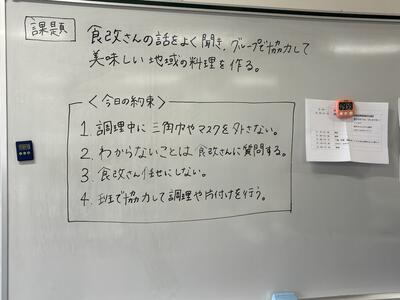 課題
食改さんの話をよく聞き、グループで協力して
美味しい地域の料理を作る。
〈今日の約束〉
1. 調理中に三角巾やマスクを外さない。
2. わからないことは食改さんに質問する。
3. 食改さん任せにしない。
4. 班で協力して調理や片付けを行う。